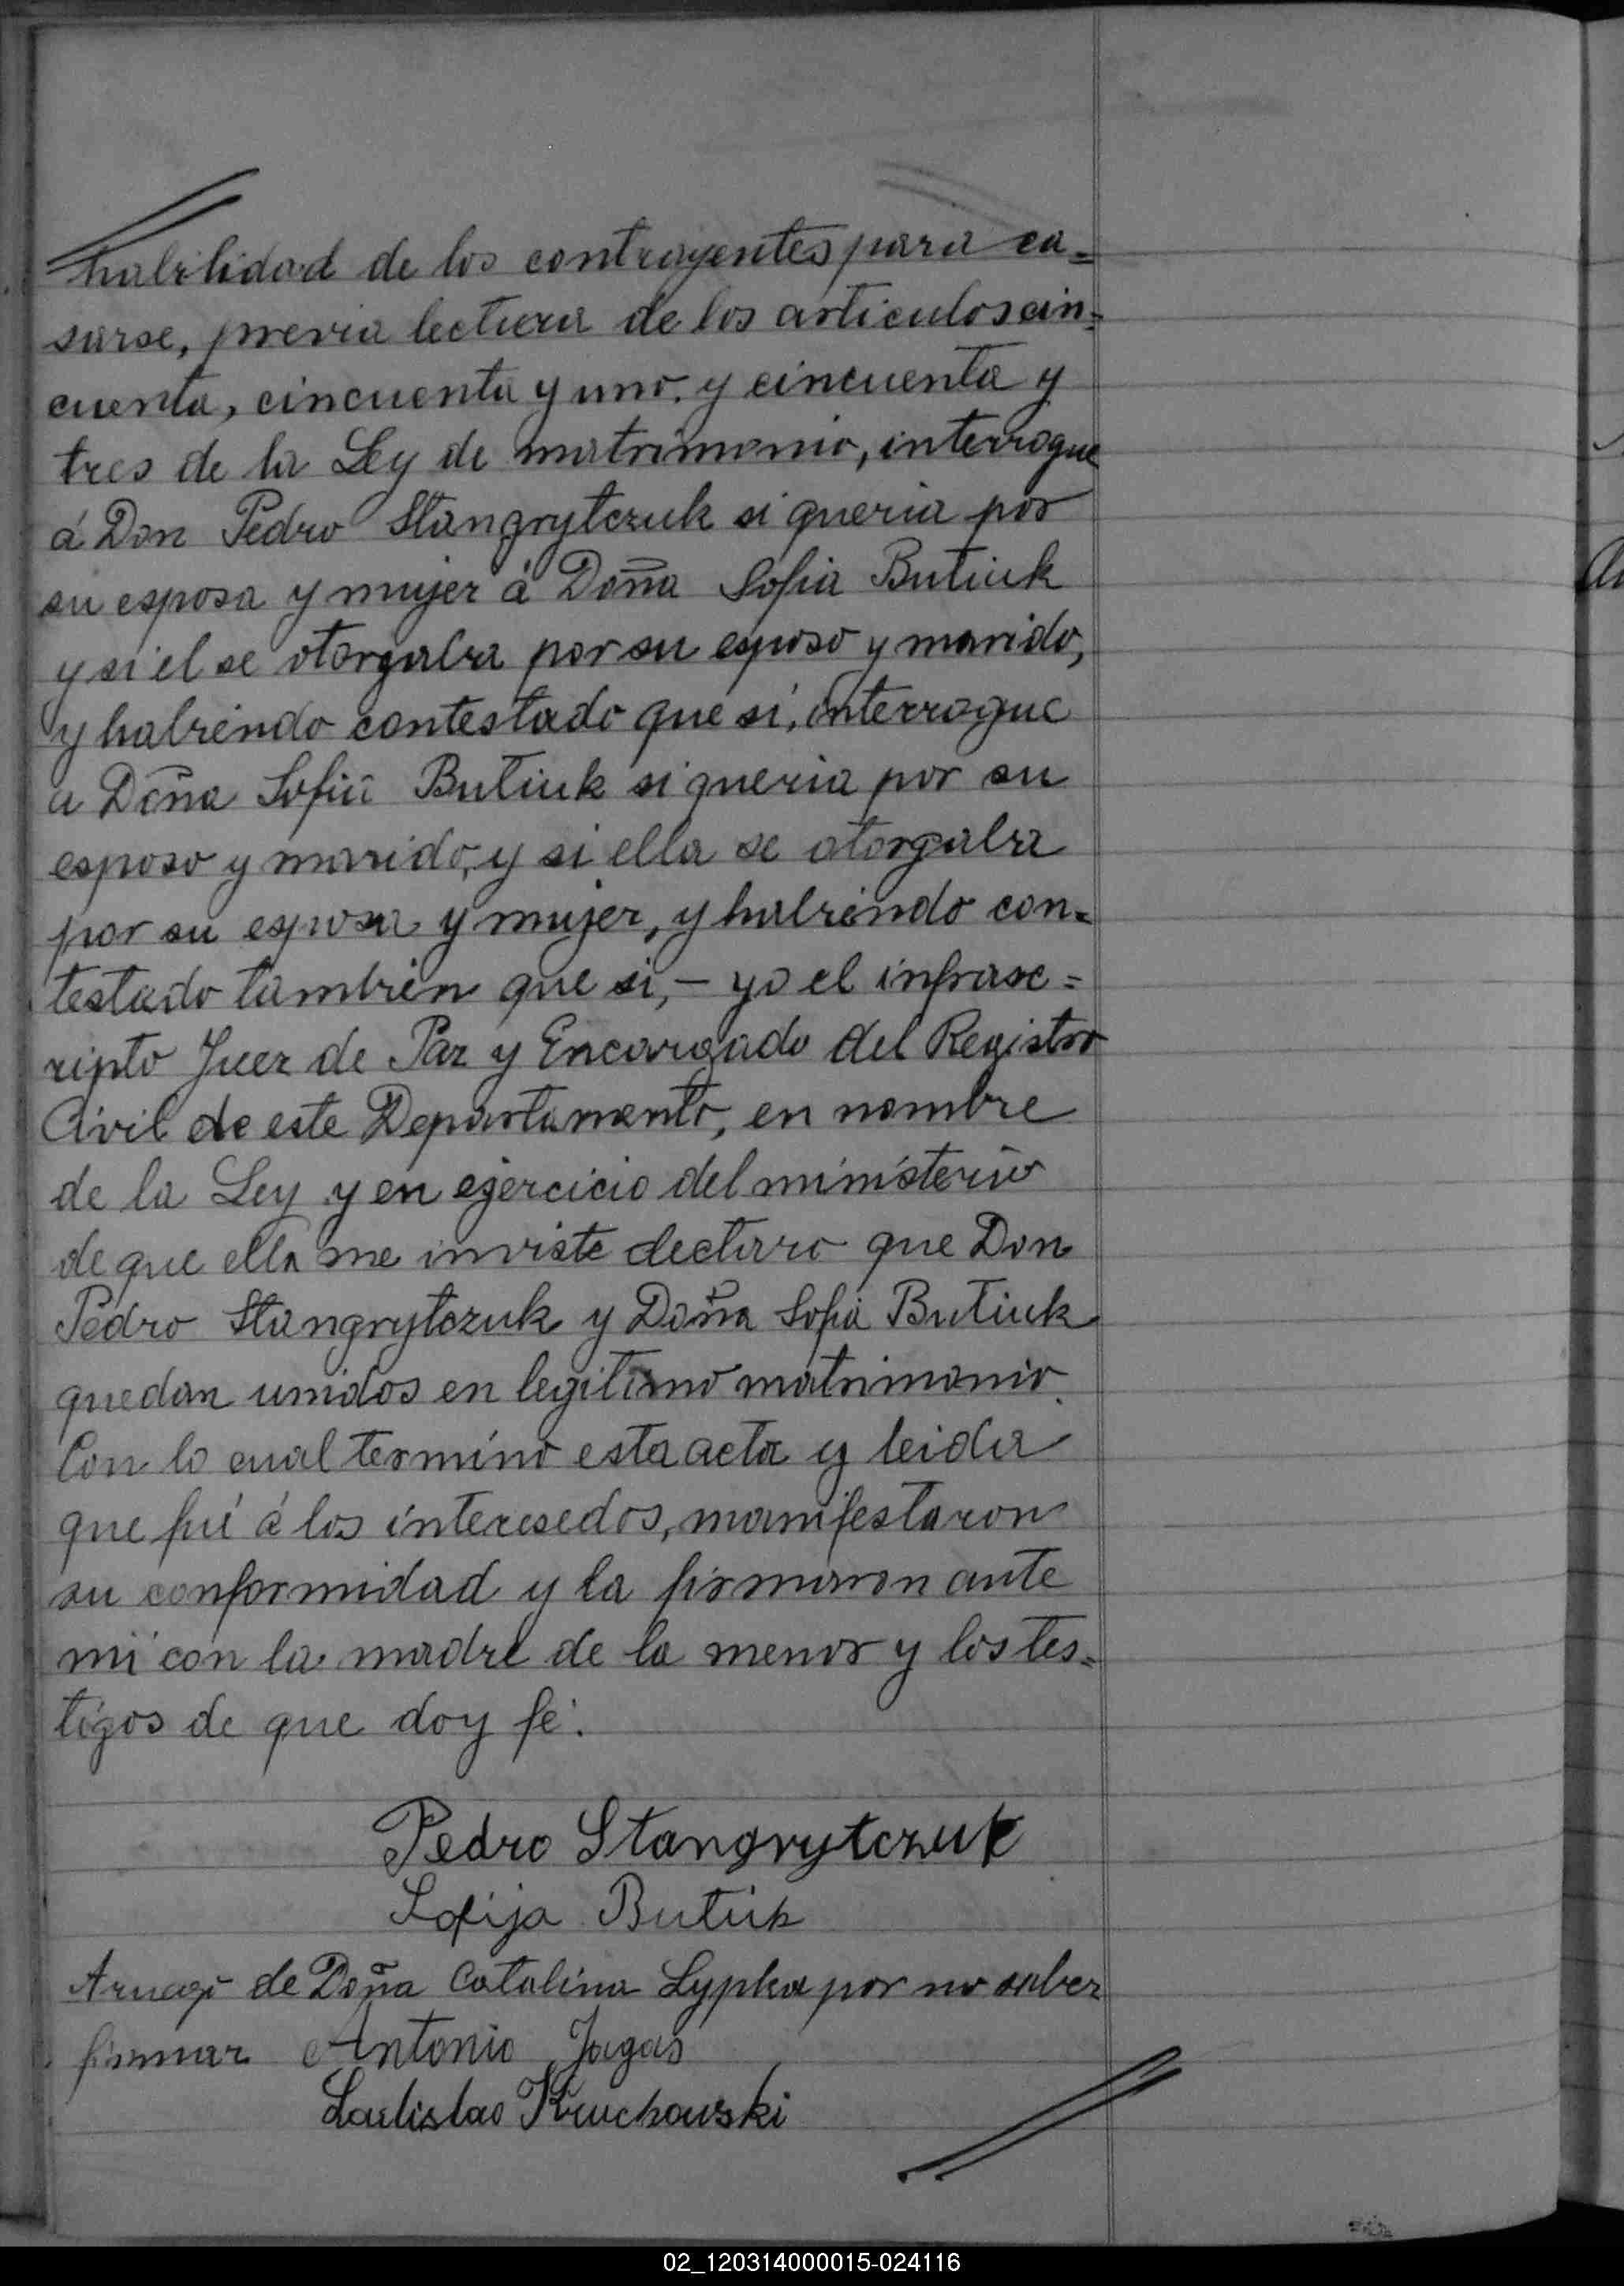 habilidad de los contrayentes para ca=
sarse, previa lectura de los articulos cin=
cuenta, cincuenta y uno y cincuenta y
tres de la Ley de matrimonio, interrogue
á Don Pedro Stangrytczuk si queria por
su esposa y mujer á Doña Sofia Butiuk
y si él se otorgaba por su esposo y marido,
y habiendo contestado que si, interrogue
a Doña Sofia Butiuk si queria por su
esposo y marido, y si ella se otorgaba
por su esposa y mujer, y habiendo con=
testado tambien que si, — yo el infrasc=
ripto Juez de Paz y Encargado del Registro
Civil de este Departamento, en nombre
de la Ley y en ejercicio del ministerio
de que ella me inviste declaro que Don
Pedro Stangrytczuk y Doña Sofia Butiuk
quedan unidos en legitimo matrimonio.
Con lo cual termino esta acta y leida
que fué á los interesedos, manifestaron
su conformidad y la firmaron ante
mi con la madre de la menor y los tes=
tigos de que doy fé.
Pedro Stangrytczuk
Sofija Butiuk
Aruego de Doña Catalina Lypka por no saber
firmar Antonio Jagas
Ladislao Kruchowski
02_120314000015-024116